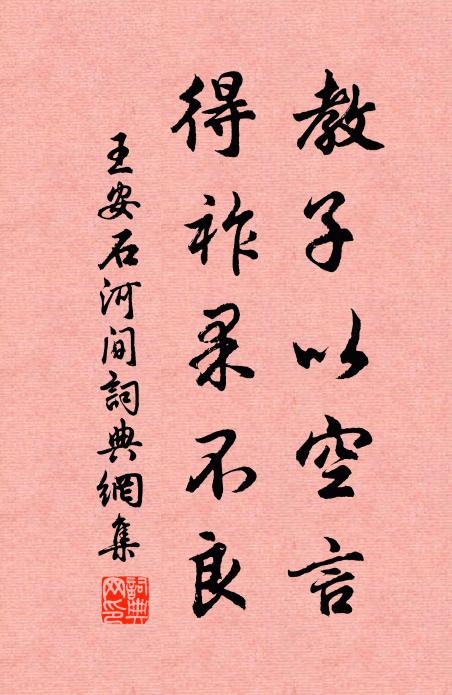 教子以空言
得祚果不良
王安石河间詞典網集
詞典网印